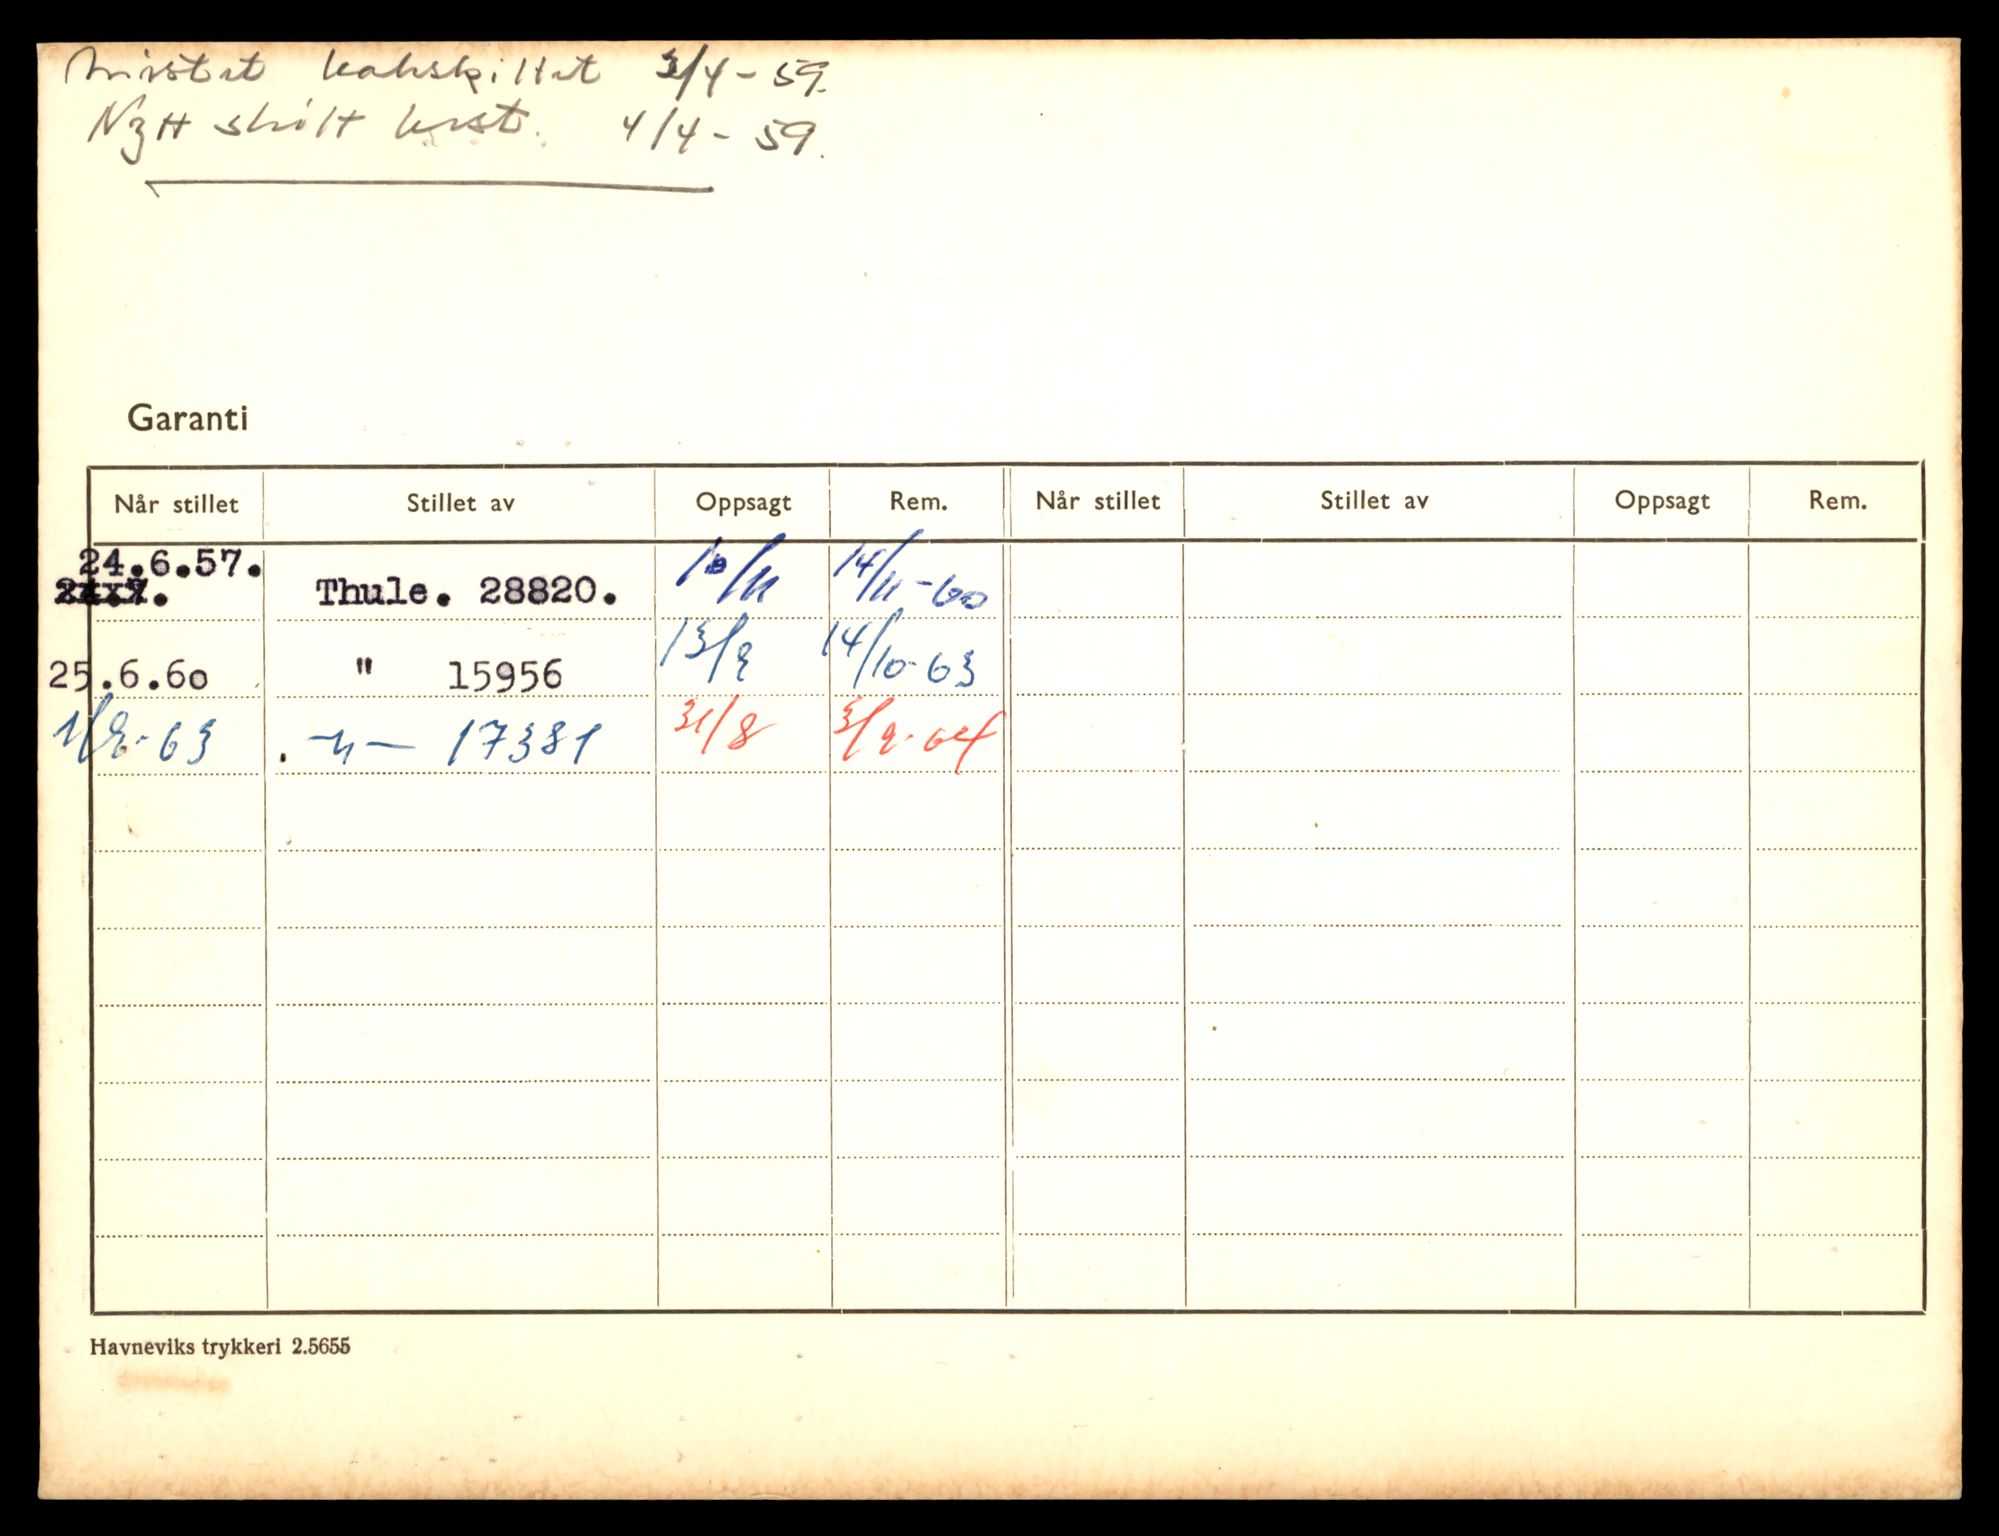 Mistet bakskiltet 3/4-59.
Nytt skilt best. 4/4-59.
Garanti
Når stillet Stillet av Oppsagt Rem. Når stillet Stillet av Oppsagt Rem.
24.6.57.
Thule. 28820. 10/11 14/11-60
25.6.60 " 15956 13/9 14/10-63
1/9-63 -"- 17381 31/8 3/9-64
Havneviks trykkeri 2.5655